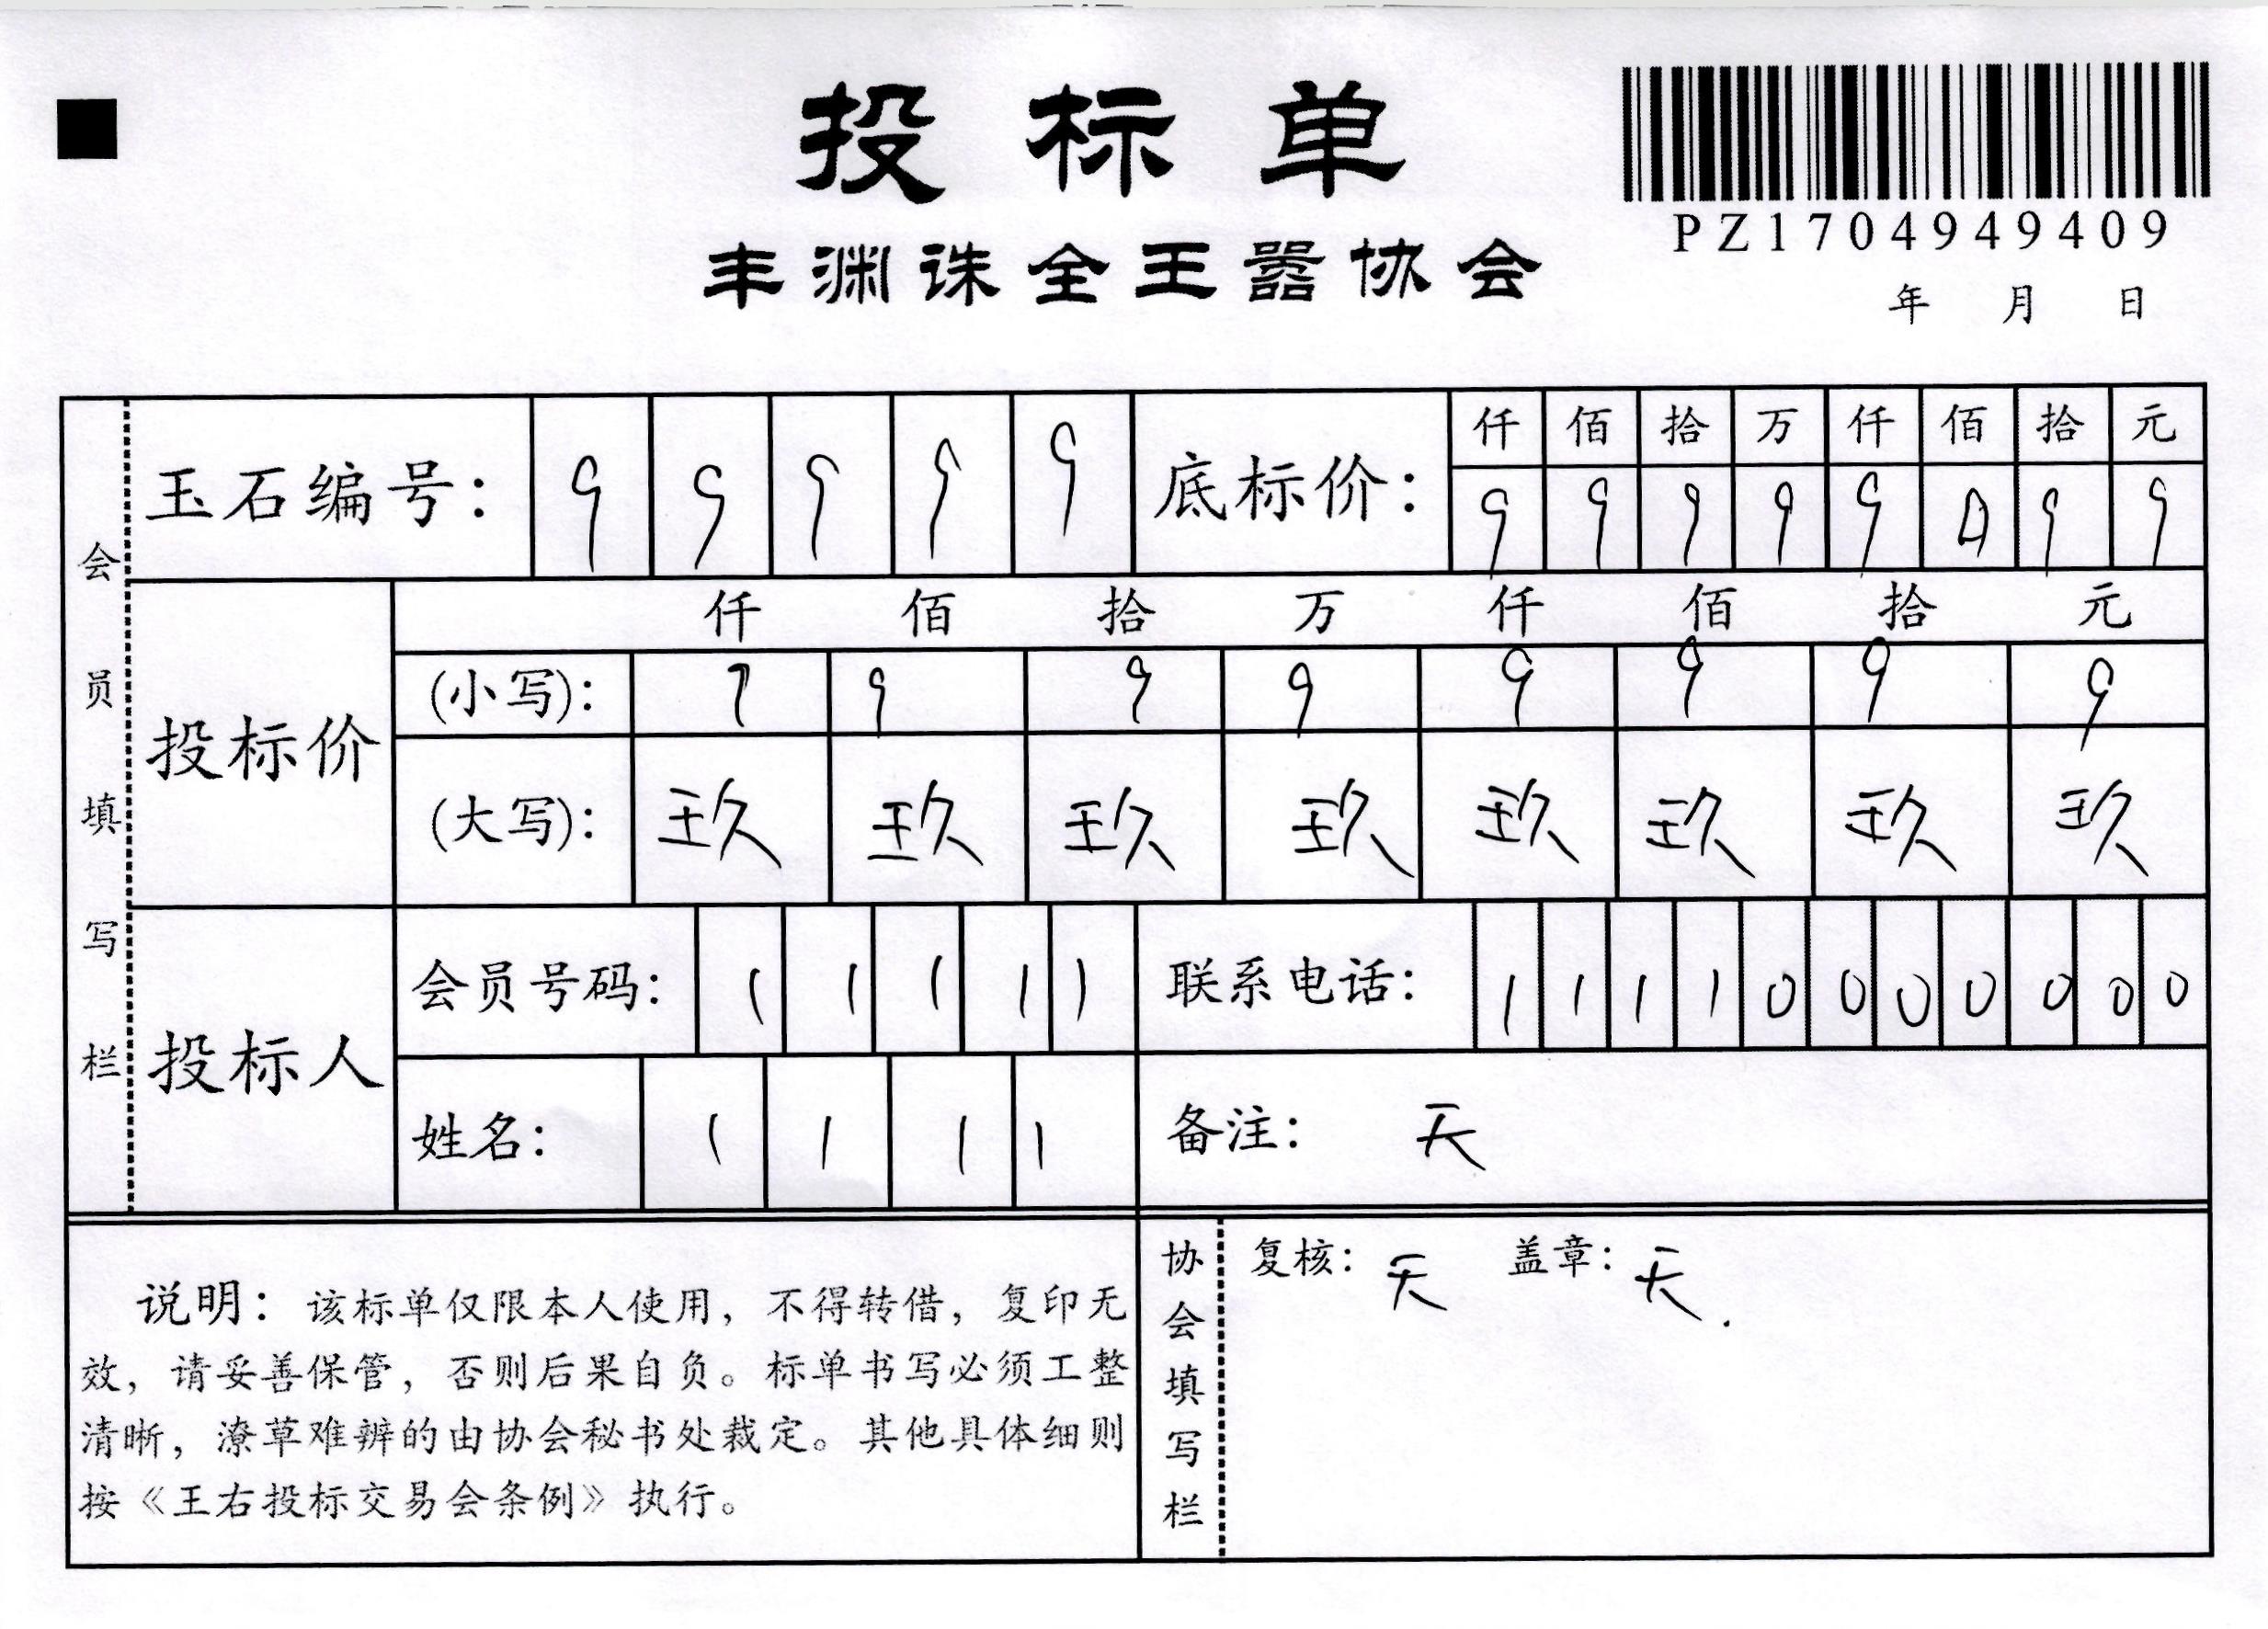 投标单
PZ1704949409
丰渊诛全王嚣协会
年 月 日
会员填写栏
玉石编号: 9 9 9 9 9
底标价: 仟 佰 拾 万 仟 佰 拾 元
9 9 9 9 9 9 9
投标价
仟 佰 拾 万 仟 佰 拾 元
(小写): 9 9 9 9 9 9 9
(大写): 玖 玖 玖 玖 玖 玖 玖 玖
投标人
会员号码: 1 1 1 1 1
联系电话: 1 1 1 1 0 0 0 0 0 0 0
姓名: 1 1 1 1
备注: 天
说明: 该标单仅限本人使用, 不得转借, 复印无
效, 请妥善保管, 否则后果自负。标单书写必须工整
清晰, 潦草难辨的由协会秘书处裁定。其他具体细则
按《王右投标交易会条例》执行。
协会填写栏
复核: 天 盖章: 天.